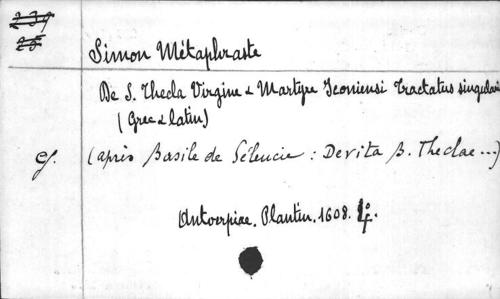 239
25
Simon Métaphraste
De S. Thecla Virgine & Martyre Iconiensi Tractatus singularis
(Grec & latin)
cf. (après Basile de Séleucie : De vita B. Theclae ...)
Antverpiae. Plantin. 1608. 4°.